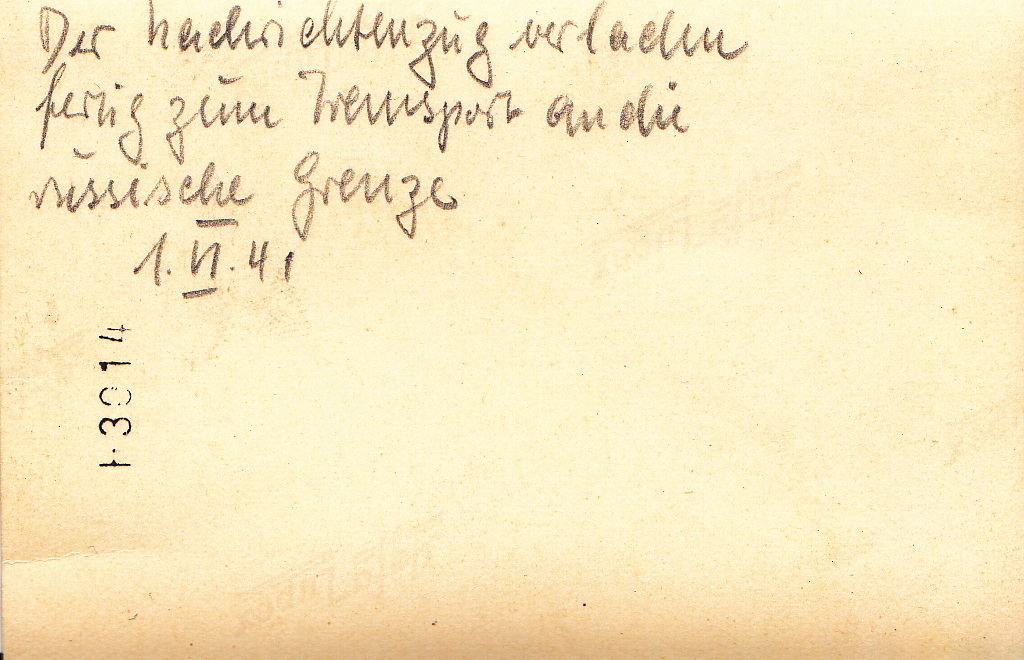 Der Nachrichtenzug verladen
fertig zum Transport an die
russische Grenze
1. VI. 41
13914